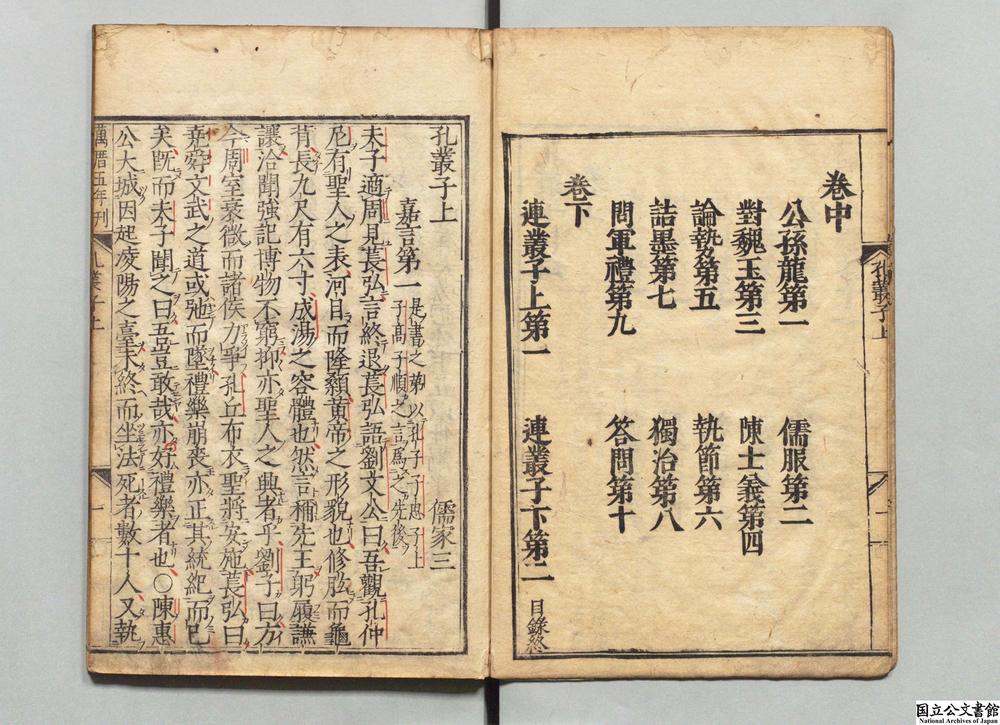 卷中
公孫龍第一　儒服第二
對魏王第三　陳士義第四
論埶第五　執節第六
詰墨第七　獨治第八
問軍禮第九　答問第十
卷下
連叢子上第一　連叢子下第二　目錄終
孔叢子上
孔叢子上　儒家三
嘉言第一　是書之第以孔子子思子上子髙子順之言爲之先後
夫子適周見萇弘言終退萇弘語劉文公曰吾觀孔仲
尼有聖人之表河目而隆顙黃帝之形貌也修肱而龜
背長九尺有六寸成湯之容體也然言稱先王躬履謙
讓洽聞強記博物不窮抑亦聖人之興者乎劉子曰方
今周室衰微而諸侯力爭孔丘布衣聖將安施萇弘曰
堯舜文武之道或弛而墜禮樂崩喪亦正其統紀而已
矣旣而夫子聞之曰吾豈敢哉亦好禮樂者也○陳惠
公大城因起凌陽之臺未終而坐法死者數十人又執
萬曆五年刊　孔叢子上　一
国立公文書館
National Archives of Japan